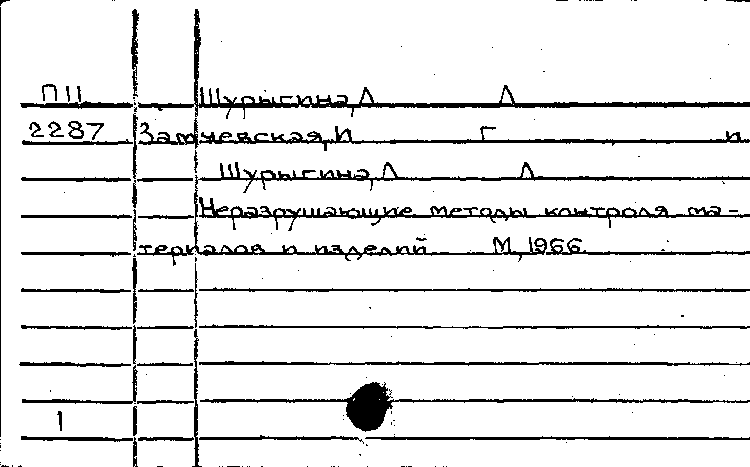 П11 Шурыгина, Л Л
2287 Замчевская, И Г и
Шурыгина, Л Л
Неразрушающие методы контроля ма-
териалов и изделий М, 1966
1